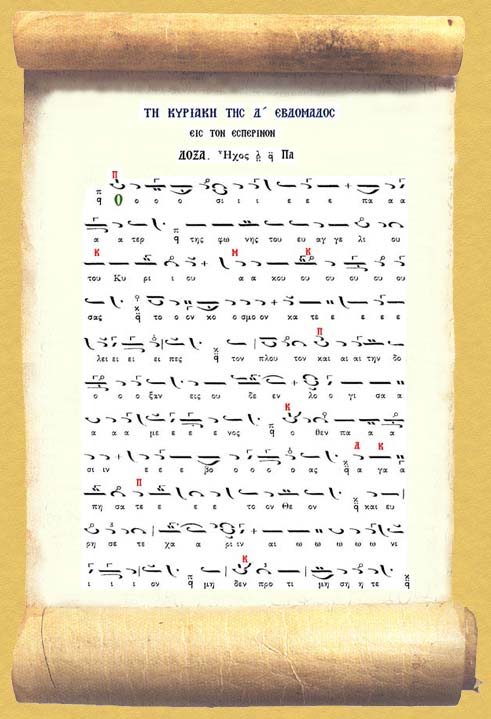 ΤΗ ΚΥΡΙΑΚΗ ΤΗΣ Δ΄ ΕΒΔΟΜΑΔΟΣ
ΕΙΣ ΤΟΝ ΕΣΠΕΡΙΝΟΝ
ΔΟΞΑ. Ἦχος λ π α Πα
Π
Ο ο ο ο σι ι ι ε ε πα α α
α α τερ της φω νης του ευ αγ γε λι ου
Κ Μ Κ
του Κυ ρι ι ου α α κου ου ου ου ου ου
σας το ο ον κο ο σμο ον κα τε ε ε ε ε
Π
λει ει ει ει ει πες τον πλου τον και αι αι την δο
ο ο ο ξαν εις ου δε εν λο ο γι σα α
Κ
α α α με ε ε ε νος ο θεν πα α α α
Δ Κ
σι ιν ε ε ε βο ο ο ο ο ας α γα α
Π
πη σα τε ε ε ε το ον Θε ον και ευ
ρη σε τε χα α ρι ιν αι ω ω ω ω ω νι
Κ
ι ι ι ον μη δεν προ τι μη ση η τε